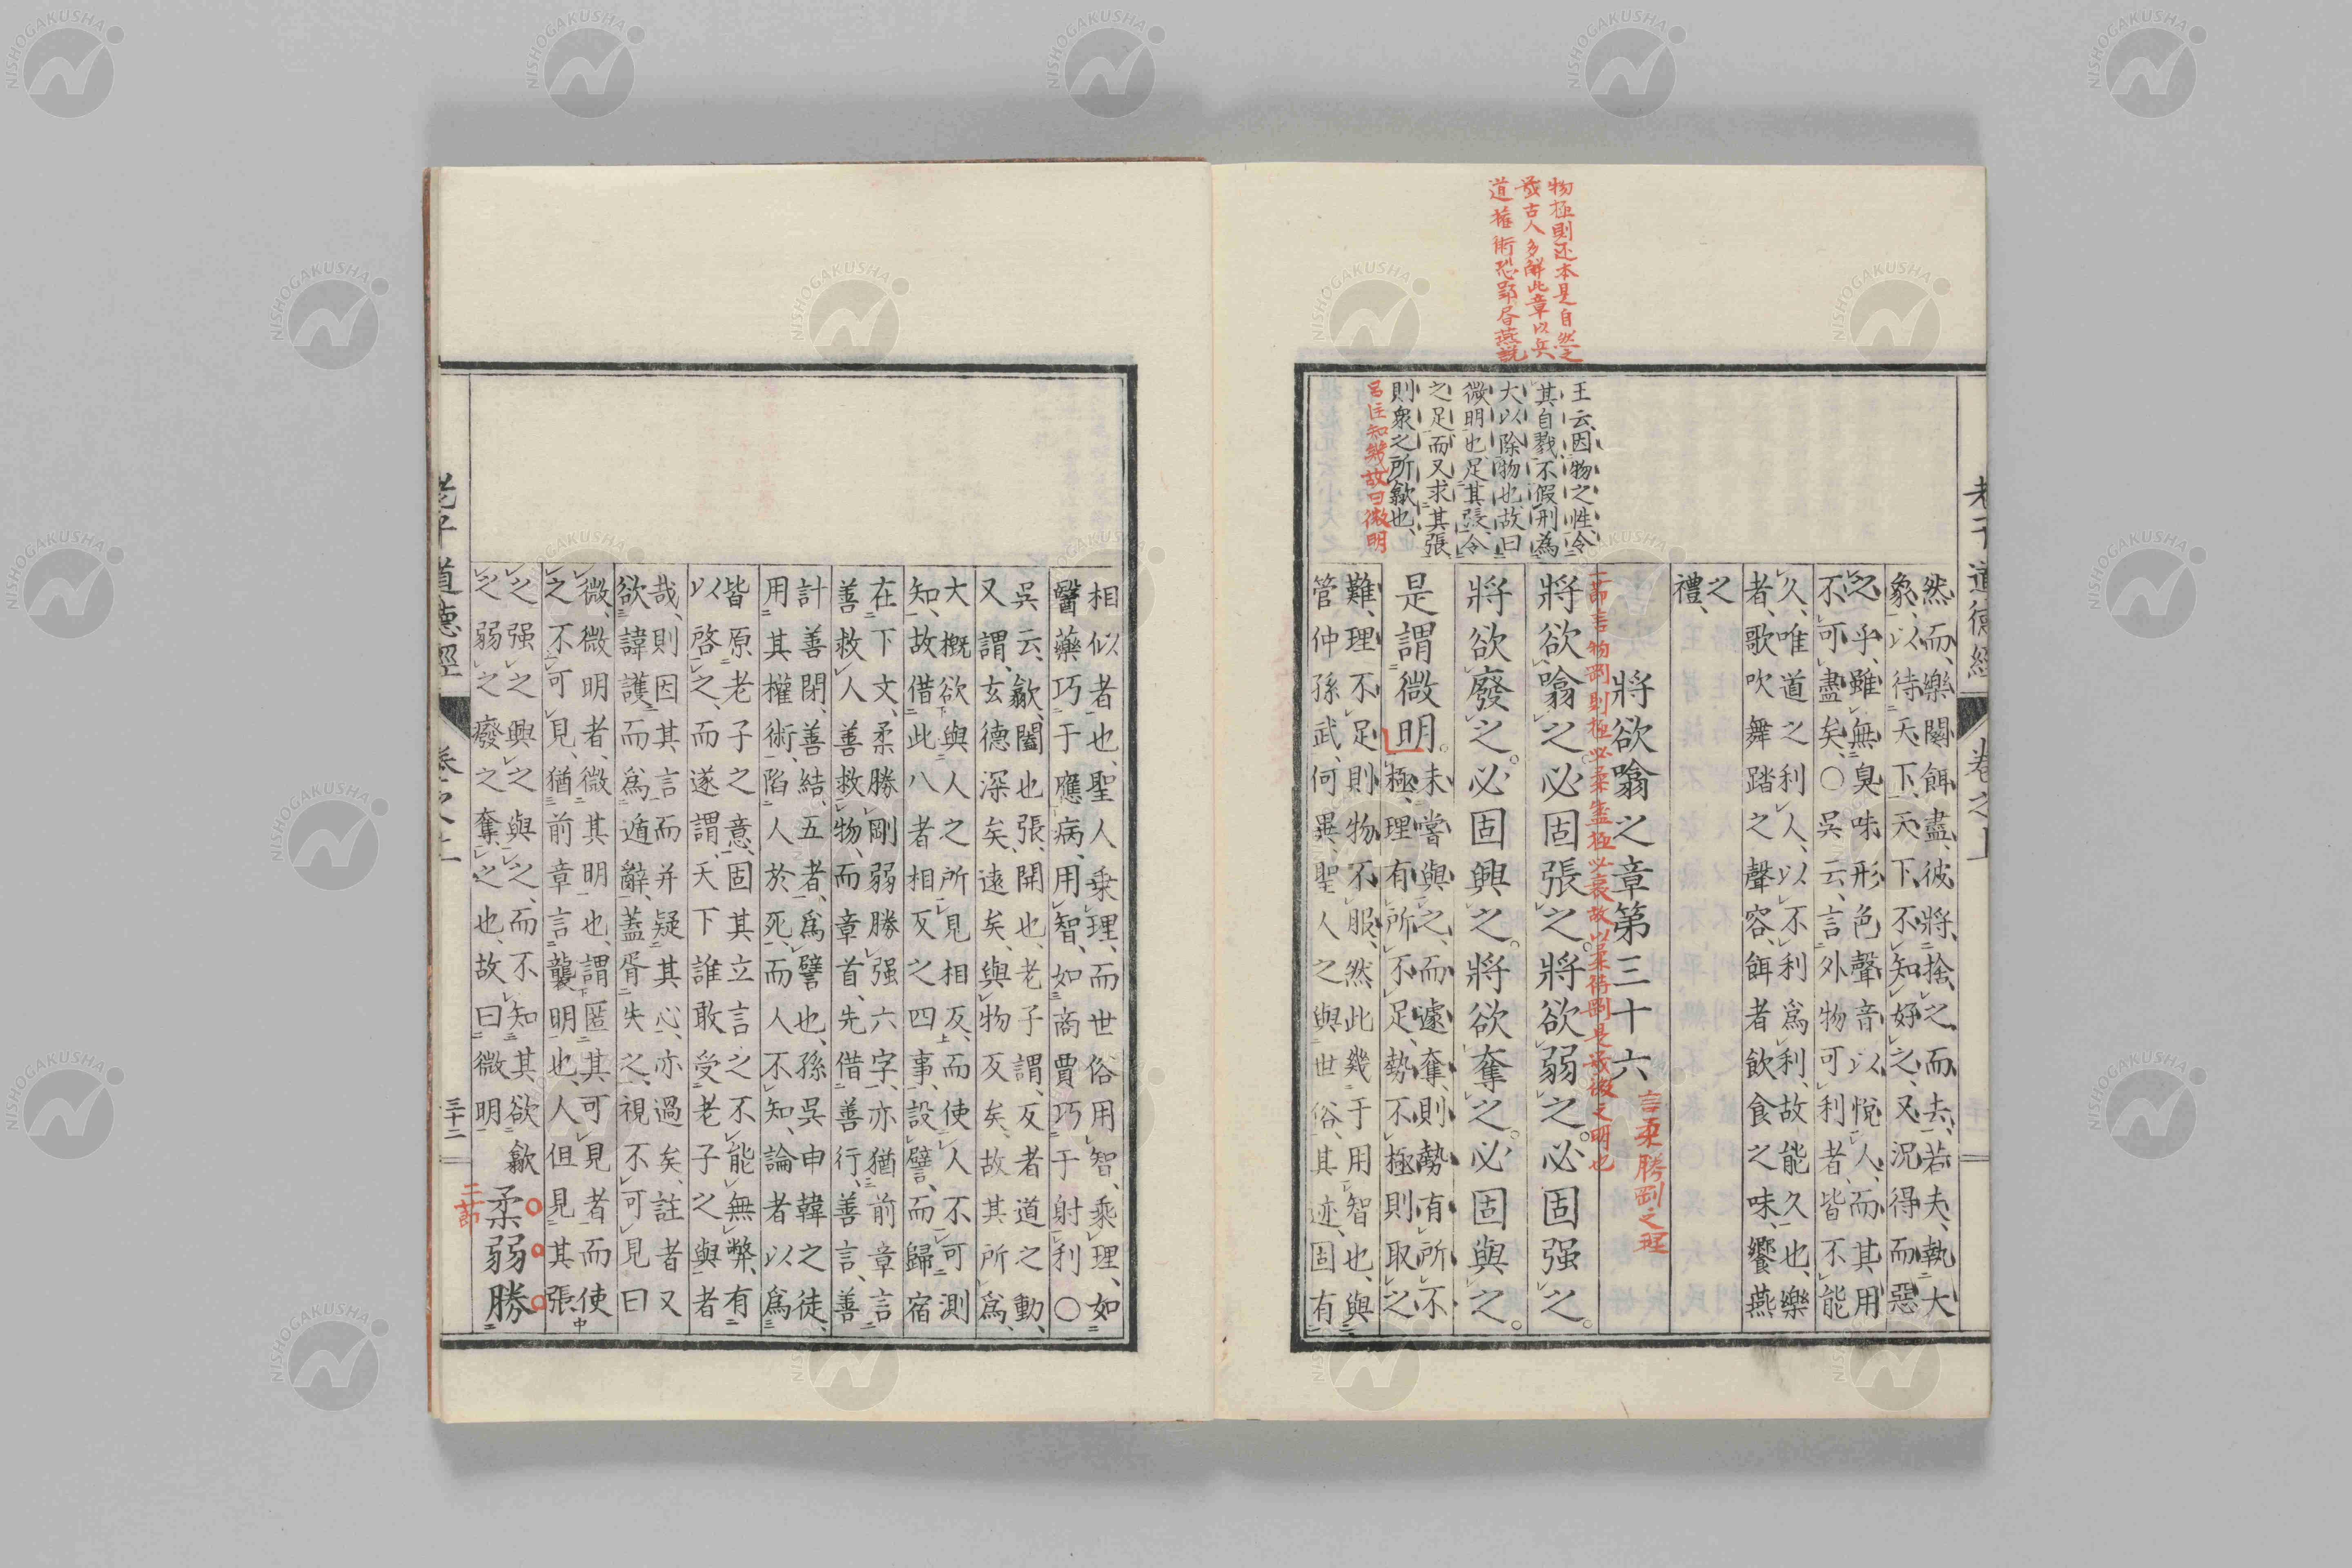 老子道德經 卷之上
然而樂闋餌盡、彼將捨之而去、若夫執大
象以待天下、天下不知好之、又況得而惡
之乎、雖無臭味形色聲音以悅人、而其用
不可盡矣、〇吳云、言外物可利者、皆不能
久、唯道之利人、以不利爲利、故能久也、樂
者、歌吹舞踏之聲容、餌者飮食之味、饗燕
之
禮、
將欲噏之章第三十六
言柔勝剛之理
一節言物剛則極必柔盛極必衰故以柔待剛是最微之明也
將欲噏之必固張之。將欲弱之。必固强之。
將欲廢之。必固興之。將欲奪之。必固與之。
是謂微明。
未嘗與之、而遽奪、則勢有所不
極、理有所不足、勢不極則取之
難、理不足則物不服、然此幾于用智也、與
管仲孫武、何異、聖人之與世俗、其迹、固有
物極則还本是自然之
發古人多解此章以兵
道權術恐郢書燕説
王云、因物之性、令
其自戮、不假刑爲
大以除物也、故曰
微明也、足其張、令
之足、而又求其張、
則衆之所歙也、
呂注知幾故曰微明
相似者也、聖人乘理、而世俗用智、乘理、如
醫藥巧于應病、用智、如商賈巧于射利〇
吳云、歙、闔也、張、開也、老子謂、反者道之動、
又謂、玄德深矣、遠矣、與物反矣、故其所爲、
大概欲與人之所見相反、而使人不可測
知、故借此八者相反之四事、設譬、而歸宿
在下文、柔勝剛弱勝强六字、亦猶前章言
善救人善救物、而章首、先借善行、善言、善
計善閉、善結、五者、爲譬也、孫吳申韓之徒、
用其權術、陷人於死、而人不知、論者以爲
皆原老子之意、固其立言之不能無弊、有
以啓之、而遂謂、天下誰敢受老子之與者
哉、則因其言而并疑其心、亦過矣、註者又
欲諱護而爲遁辭、蓋胥失之、視不可見曰
微、微明者、微其明也、謂匿其可見者而使
之不可見、猶前章言襲明也、人但見其張
之强之興之與之、而不知其欲歙
之弱之廢之奪之也、故曰微明
柔弱勝
二節
老子道德經 卷之上 三十二